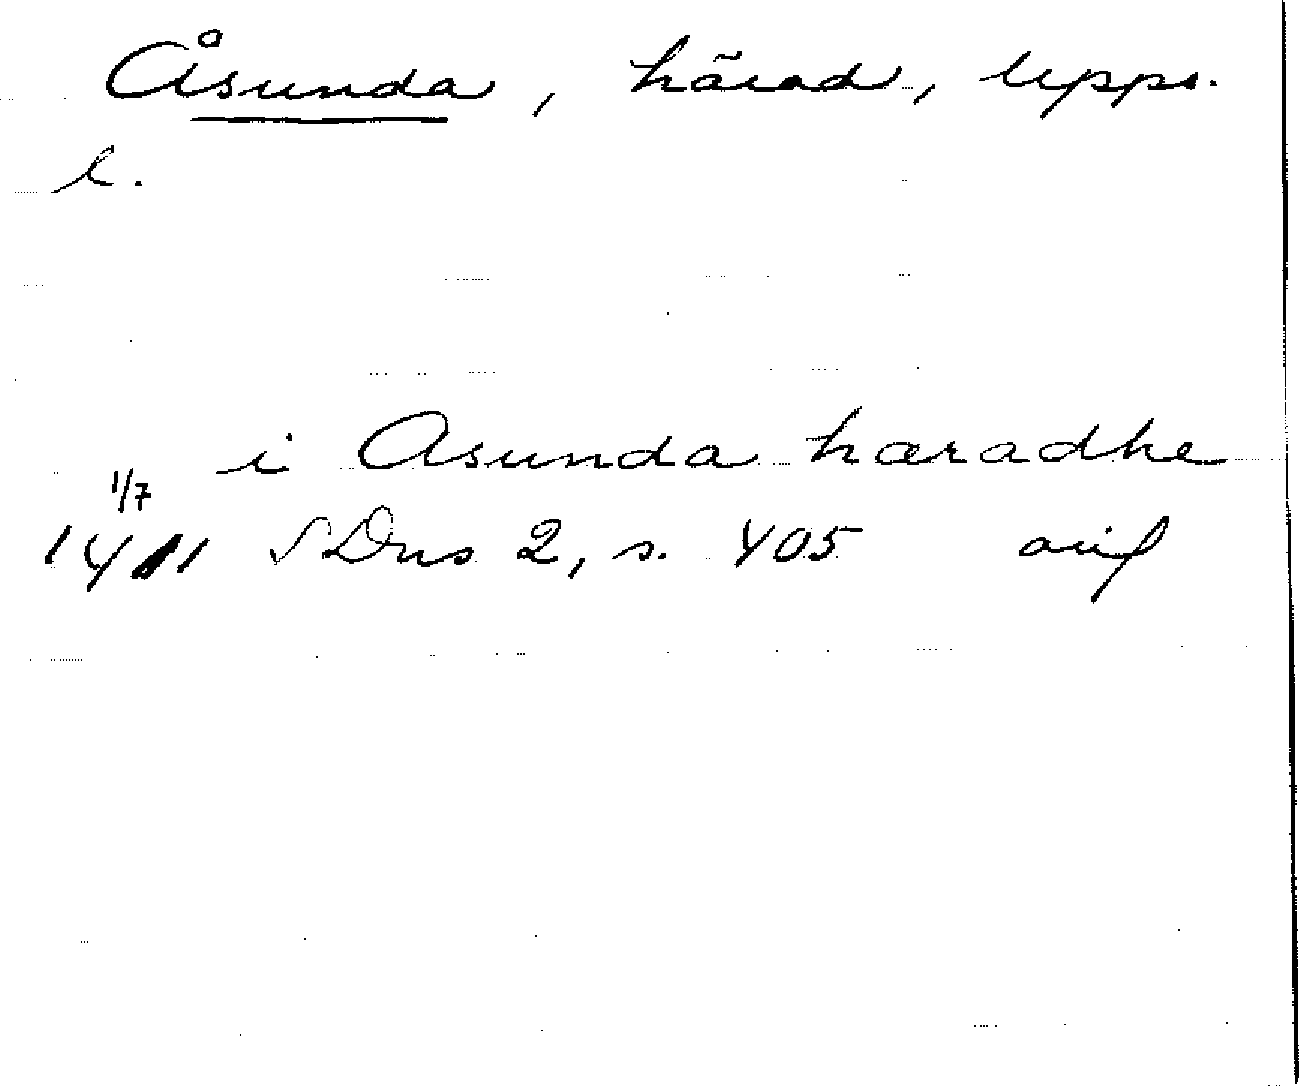 Åsunda, härad, Upps.
l.
i Asunda hæradhe
1/7
1411 SDns 2, s. 405 avif